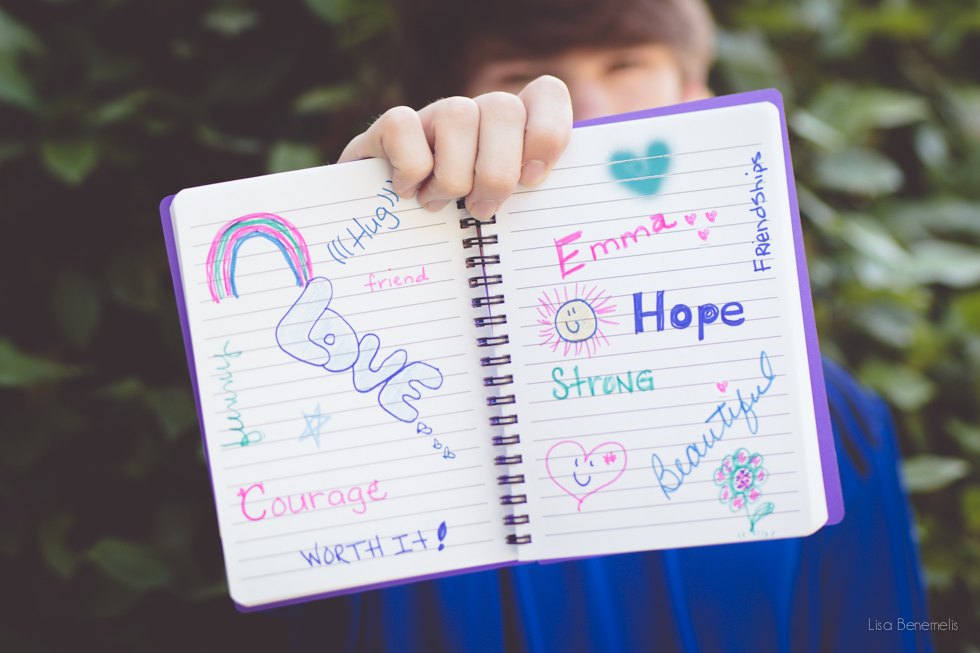 (((Hug)))
friend
LOVE
Courage
WORTH It!
Friendships
Emma
Hope
StroNG
Beautiful
Lisa Benemelis